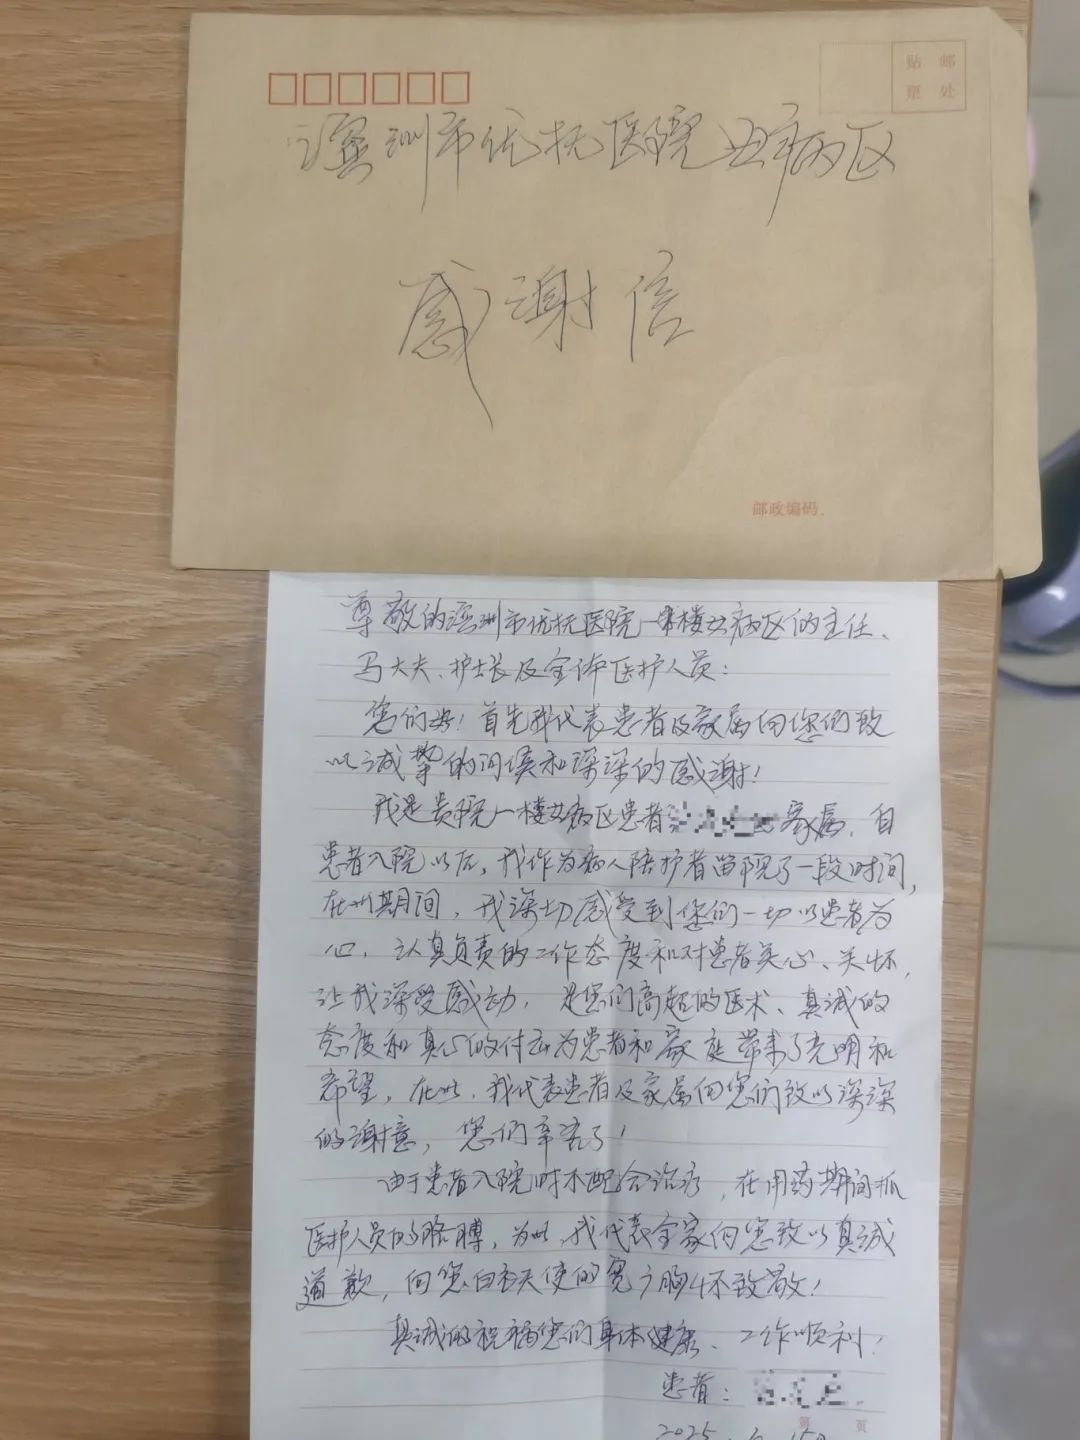 贴 邮
票 处
滨洲市优抚医院女病区
感谢信
邮政编码
尊敬的滨洲市优抚医院一楼女病区的主任、
马大夫、护士长及全体医护人员：
您们好！首先我代表患者及家属向您们致
以诚挚的问候和深深的感谢！
我是贵院一楼女病区患者家属，自
患者入院以后，我作为病人陪护者留院了一段时间，
在此期间，我深切感受到您们一切以患者为
心，认真负责的工作态度和对患者关心、关怀，
让我深受感动，是您们高超的医术、真诚的
态度和真心的付出为患者和家庭带来了光明和
希望，在此，我代表患者及家属向您们致以深深
的谢意，您们辛苦了！
由于患者入院时不配合治疗，在用药期间抓
医护人员的胳膊，为此，我代表全家向您致以真诚
道歉，向您白衣天使的宽广胸怀致敬！
真诚的祝福您们身体健康、工作顺利！
患者：
第 页
2025.